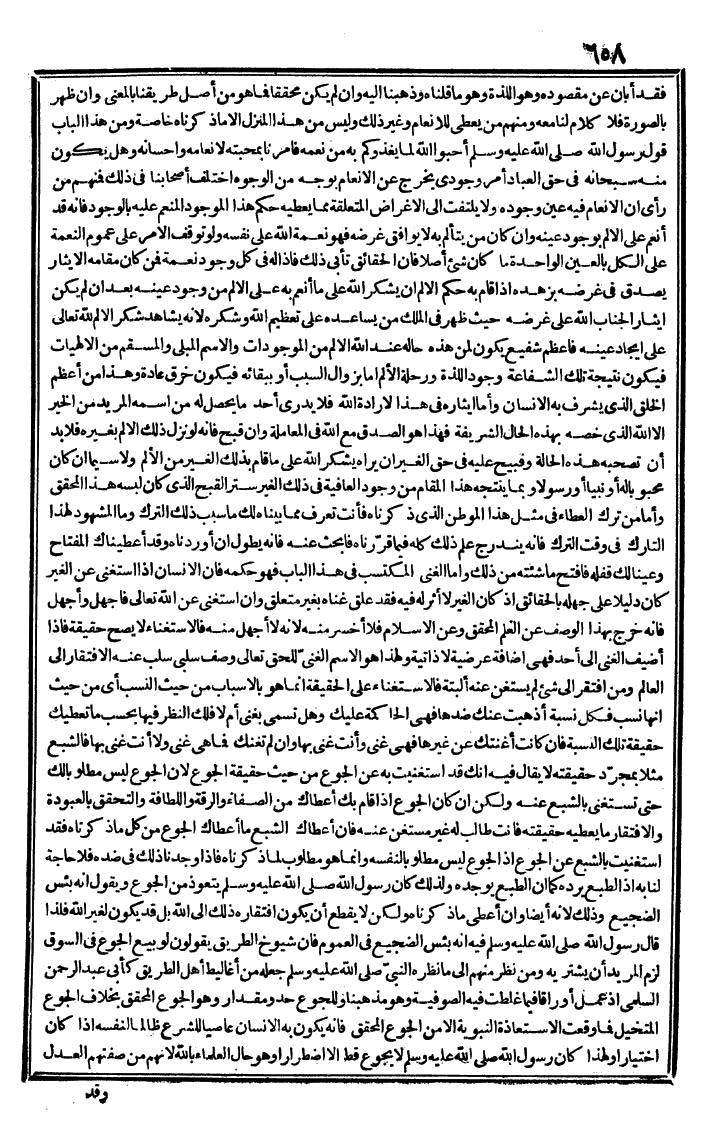 ٦٥٨
فقد أبان عن مقصوده وهو اللذة وهو ما قلناه وذهبنا اليه وان لم يكن محققا فما هو من أصل طريقنا بالمعنى وان ظهر
بالصورة فلا كلام لنا معه ومنهم من يعطى للانعام وغير ذلك وليس من هذا المنزل الا ماذكرناه خاصة ومن هذا الباب
قول رسول الله صلى الله عليه وسلم أحبوا الله لما يغذوكم به من نعمه فأمرنا بمحبته لانعامه واحسانه وهل يكون
منه سبحانه فى حق العباد أمر وجودى يخرج عن الانعام بوجه من الوجوه اختلف أصحابنا فى ذلك فمنهم من
رأى ان الانعام فيه عين وجوده ولا يلتفت الى الاغراض المتعلقة بما يعطيه حكم هذا الموجود المنعم عليه بالوجود فانه قد
أنعم على الالم بوجود عينه وان كان من يتألم به لا يوافق غرضه فهو نعمة الله على نفسه ولو توقف الامر على عموم النعمة
على الكل بالعين الواحدة ما كان شئ أصلا فان الحقائق تأبى ذلك فاذا له فى كل وجود نعمة فمن كان مقامه الايثار
يصدق فى غرضه بزهده اذا قام به حكم الالم ان يشكر الله على ما أنعم به على الالم من وجود عينه بعد ان لم يكن
ايثارا لجناب الله على غرضه حيث ظهر فى الملك من يساعده على تعظيم الله وشكره لانه يشاهد شكر الالم لله تعالى
على ايجاد عينه فأعظم شفيع يكون لمن هذه حاله عند الله الالم من الموجودات والاسم المبلى والمسقم من الالهيات
فيكون نتيجة تلك الشفاعة وجود اللذة ورحلة الألم اما بزوال السبب أو ببقائه فيكون خرق عادة وهذا من أعظم
الخلق الذى يشرف به الانسان وأما ايثاره فى هذا لارادة الله فلا يدرى أحد ما يحصل له من اسمه المريد من الخير
الا الله الذى خصه بهذه الحال الشريفة فهذا هو الصدق مع الله فى المعاملة وان قبح فانه لو نزل ذلك الالم بغيره فلابد
أن تصحبه هذه الحالة وقبيح عليه فى حق الغير ان يراه يشكر الله على ما قام بذلك الغير من الألم ولا سيما ان كان
محبو باله أو نبيا أو رسولا و بما ينتجه هذا المقام من وجود العافية فى ذلك الغير ستر القبح الذى كان لبسه هذا المحقق
وأما من ترك العطاء فى مثل هذا الموطن الذى ذكرناه فأنت تعرف مما بيناه لك ما سبب ذلك الترك وما المشهود لهذا
التارك فى وقت الترك فانه يندرج علم ذلك كله فيما قرّرناه فابحث عنه فانه يطول ان أوردناه وقد أعطيناك المفتاح
وعينا لك قفله فافتح ما شئته من ذلك وأما الغنى المكتسب فى هذا الباب فهو حكمه فان الانسان اذا استغنى عن الغير
كان دليلا على جهله بالحقائق اذ كان الغير لا أثر له فيه فقد علق غناه بغير متعلق وان استغنى عن الله تعالى فاجهل وأجهل
فانه خرج بهذا الوصف عن العلم المحقق وعن الاسلام فلا أخسر منه لانه لا أجهل منه فالاستغناء لا يصح حقيقة فاذا
أضيف الغنى الى أحد فهى اضافة عرضية لا ذاتية ولهذا هو الاسم الغنىّ للحق تعالى وصف سلبى سلب عنه الافتقار الى
العالم ومن افتقر الى شئ لم يستغن عنه ألبتة فالاستغناء على الحقيقة انما هو بالاسباب من حيث النسب أى من حيث
انها نسب فكل نسبة أذهبت عنك ضدها فهى الحاكمة عليك وهل تسمى بغنى أم لا فلك النظر فيها بحسب ما تعطيك
حقيقة تلك النسبة فان كانت أغنتك عن غيرها فهى غنى وأنت غنى بها وان لم تغنك فما هى غنى ولا أنت غنى بها فالشبع
مثلا بمجرّد حقيقته لا يقال فيه انك قد استغنيت به عن الجوع من حيث حقيقة الجوع لان الجوع ليس مطلوبا لك
حتى تستغنى بالشبع عنه ولكن ان كان الجوع اذا قام بك أعطاك من الصفاء والرقة واللطافة والتحقق بالعبودة
والافتقار ما يعطيه حقيقته فانت طالب له غير مستغن عنه فان أعطاك الشبع ما أعطاك الجوع من كل ماذكرناه فقد
استغنيت بالشبع عن الجوع اذ الجوع ليس مطلوبا لنفسه وانما هو مطلوب لماذكرناه فاذا وجدنا ذلك فى ضده فلا حاجة
لنا به اذ الطبع يرده كما ان الطبع يوجده ولذلك كان رسول الله صلى الله عليه وسلم يتعوذ من الجوع ويقول انه بئس
الضجيع وذلك لانه أيضا وان أعطى ماذكرناه ولكن لا يقطع أن يكون افتقاره ذلك الى الله بل قد يكون لغير الله فلذا
قال رسول الله صلى الله عليه وسلم فيه انه بئس الضجيع فى العموم فان شيوخ الطريق يقولون لو بيع الجوع فى السوق
لزم المريد أن يشتريه ومن نظر منهم الى ما نظره النبىّ صلى الله عليه وسلم جعله من أغاليط أهل الطريق كأبى عبد الرحمن
السلمى اذ عمل أوراقا فيما غلطت فيه الصوفية وهو مذهبنا وللجوع حد ومقدار وهو الجوع المحقق بخلاف الجوع
المتخيل فما وقعت الاستعاذة النبوية الا من الجوع المحقق فانه يكون به الانسان عاصيا للشرع ظالما لنفسه اذا كان
اختيارا ولهذا كان رسول الله صلى الله عليه وسلم لا يجوع قط الا اضطرارا وهو حال العلماء بالله لانهم من صفتهم العدل
وقد